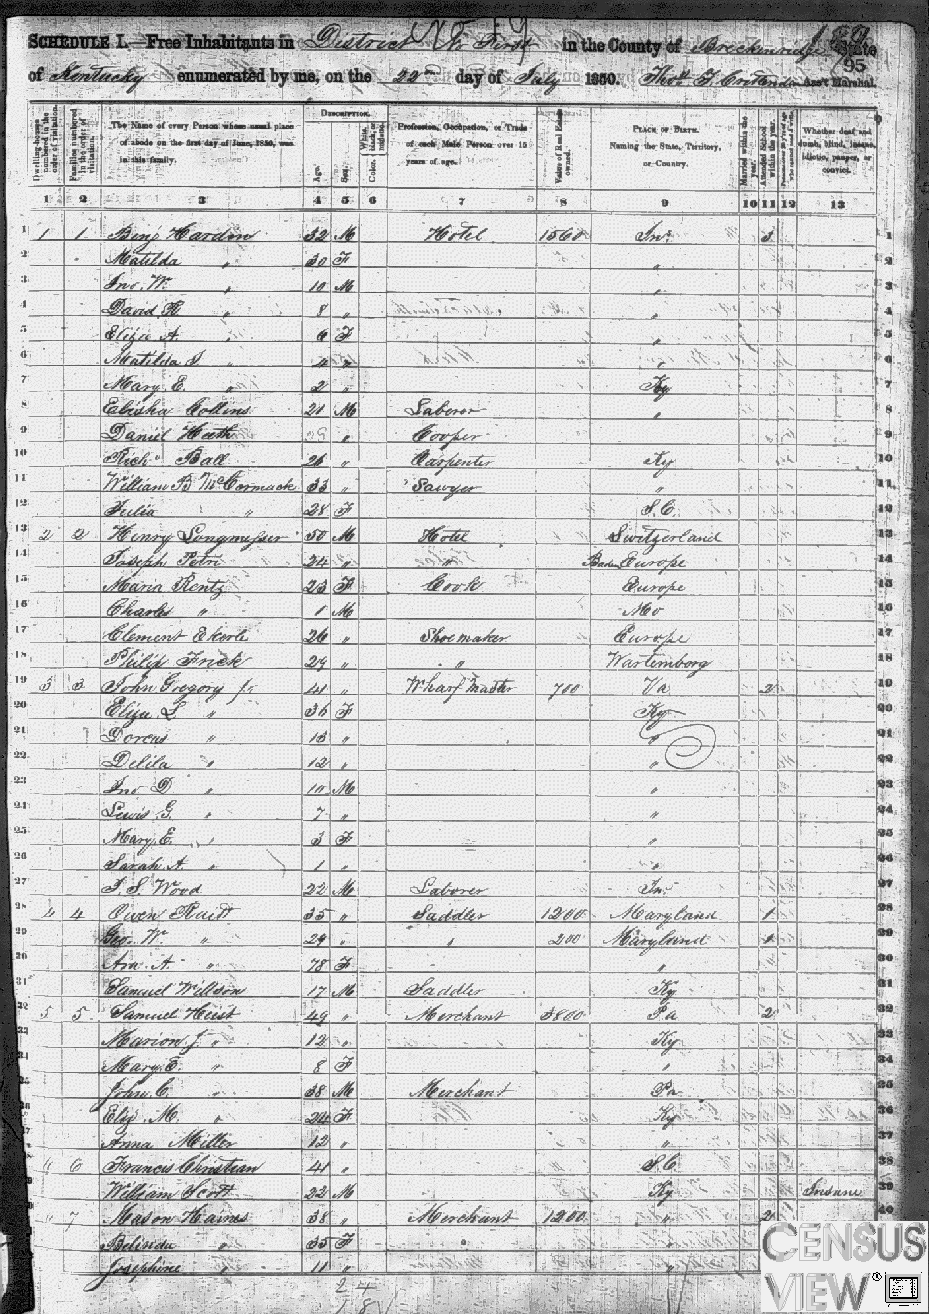 SCHEDULE I.—Free Inhabitants in District No First in the County of Breckenridge State
95
of Kentucky enumerated by me, on the 22 day of July 1850. Thos Ass't Marshal.
Dwelling-houses numbered in the order of visitation.
Families numbered in the order of visitation.
The Name of every Person whose usual place of abode on the first day of June, 1850, was in this family.
DESCRIPTION.
Age.
Sex.
Color. White, black, or mulatto.
Profession, Occupation, or Trade of each Male Person over 15 years of age.
Value of Real Estate owned.
PLACE OF BIRTH. Naming the State, Territory, or Country.
Married within the year.
Attended School within the year.
Whether deaf and dumb, blind, insane, idiotic, pauper, or convict.
1 2 3 4 5 6 7 8 9 10 11 12 13
1 1 1 Benj Hardin 32 M Hotel 1560 In 3 1
2 Matilda " 30 F " 2
3 Jno. W. " 10 M " 3
4 David R " 8 " " 4
5 Eliza A. " 6 F " 5
6 Matilda J. " 4 " " 6
7 Mary E. " 2 " Ky 7
8 Elisha Collins 21 M Laborer " 8
9 Daniel Heath " Cooper 9
10 Richd Ball 26 " Carpenter Ky 10
11 William B McCormack 33 " Sawyer " 11
12 Julia " 28 F S.C. 12
13 2 2 Henry Longmesser 50 M Hotel Switzerland 13
14 Joseph Petri 24 " " Baden Europe 14
15 Maria Rentz 23 F Cook Europe 15
16 Charles " 1 M Mo 16
17 Clement Ekerle 26 " Shoemaker Europe 17
18 Philip Frick 29 " " Wartemborg 18
19 3 3 John Gregory Jr 41 " Wharf Master 700 Va 2 19
20 Eliza L " 36 F Ky 20
21 Dorcus " 13 " " 21
22 Delila " 12 " " 22
23 Jno D " 10 M " 23
24 Lewis G. " 7 " " 24
25 Mary E. " 3 F " 25
26 Sarah A. " 1 " " 26
27 J. S. Wood 22 M Laborer In 27
28 4 4 Owen Raitt 35 " Saddler 1200 Maryland 1 28
29 Geo. W. " 29 " " 200 Maryland 1 29
30 Ara A. " 78 F " 30
31 Samuel Willson 17 M Saddler Ky 31
32 5 5 Samuel Heist 49 " Merchant 3800 Pa 2 32
Marion J. " 12 " Ky 33
Mary E. " 8 F " 34
John C. " 38 M Merchant Pa 35
Eliz. M. " 24 F Ky 36
Anna Miller 12 " " 37
6 6 Francis Christian 41 " S.C. 38
William Scott 22 M Ky Insane 39
7 Mason Haines 38 " Merchant 1200 " 2 40
Belinda " 35 F "
Josephine " 11 " "
2 4
18
CENSUS
VIEW®